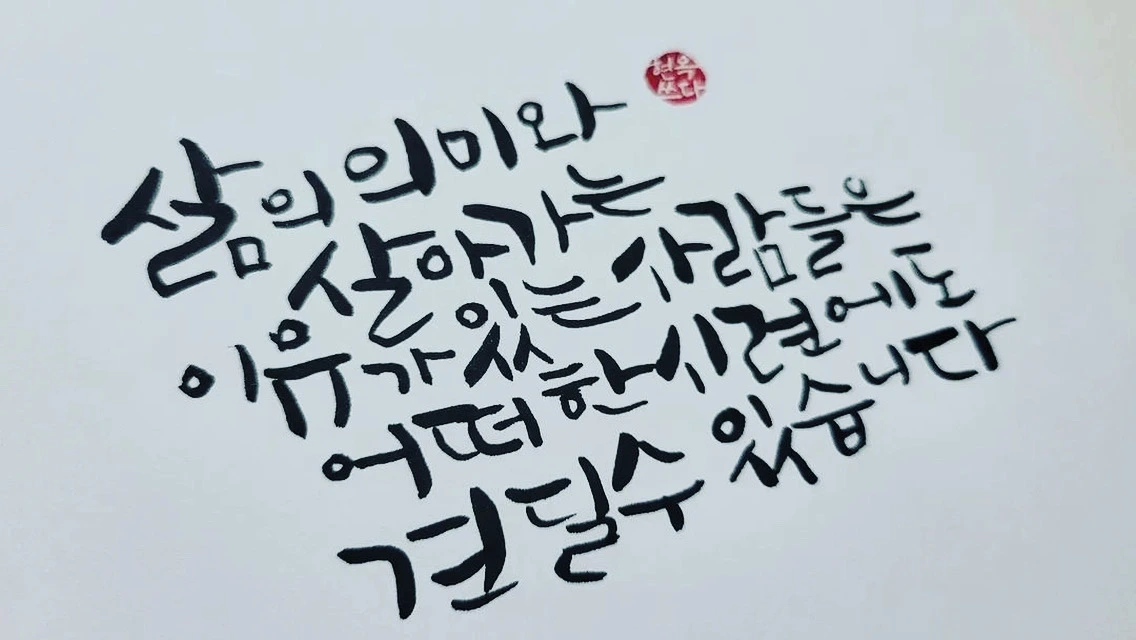 삶의 의미와
살아가는
이유가 있는 사람들은
어떠한 시련에도
견딜 수 있습니다
현옥
쓰다